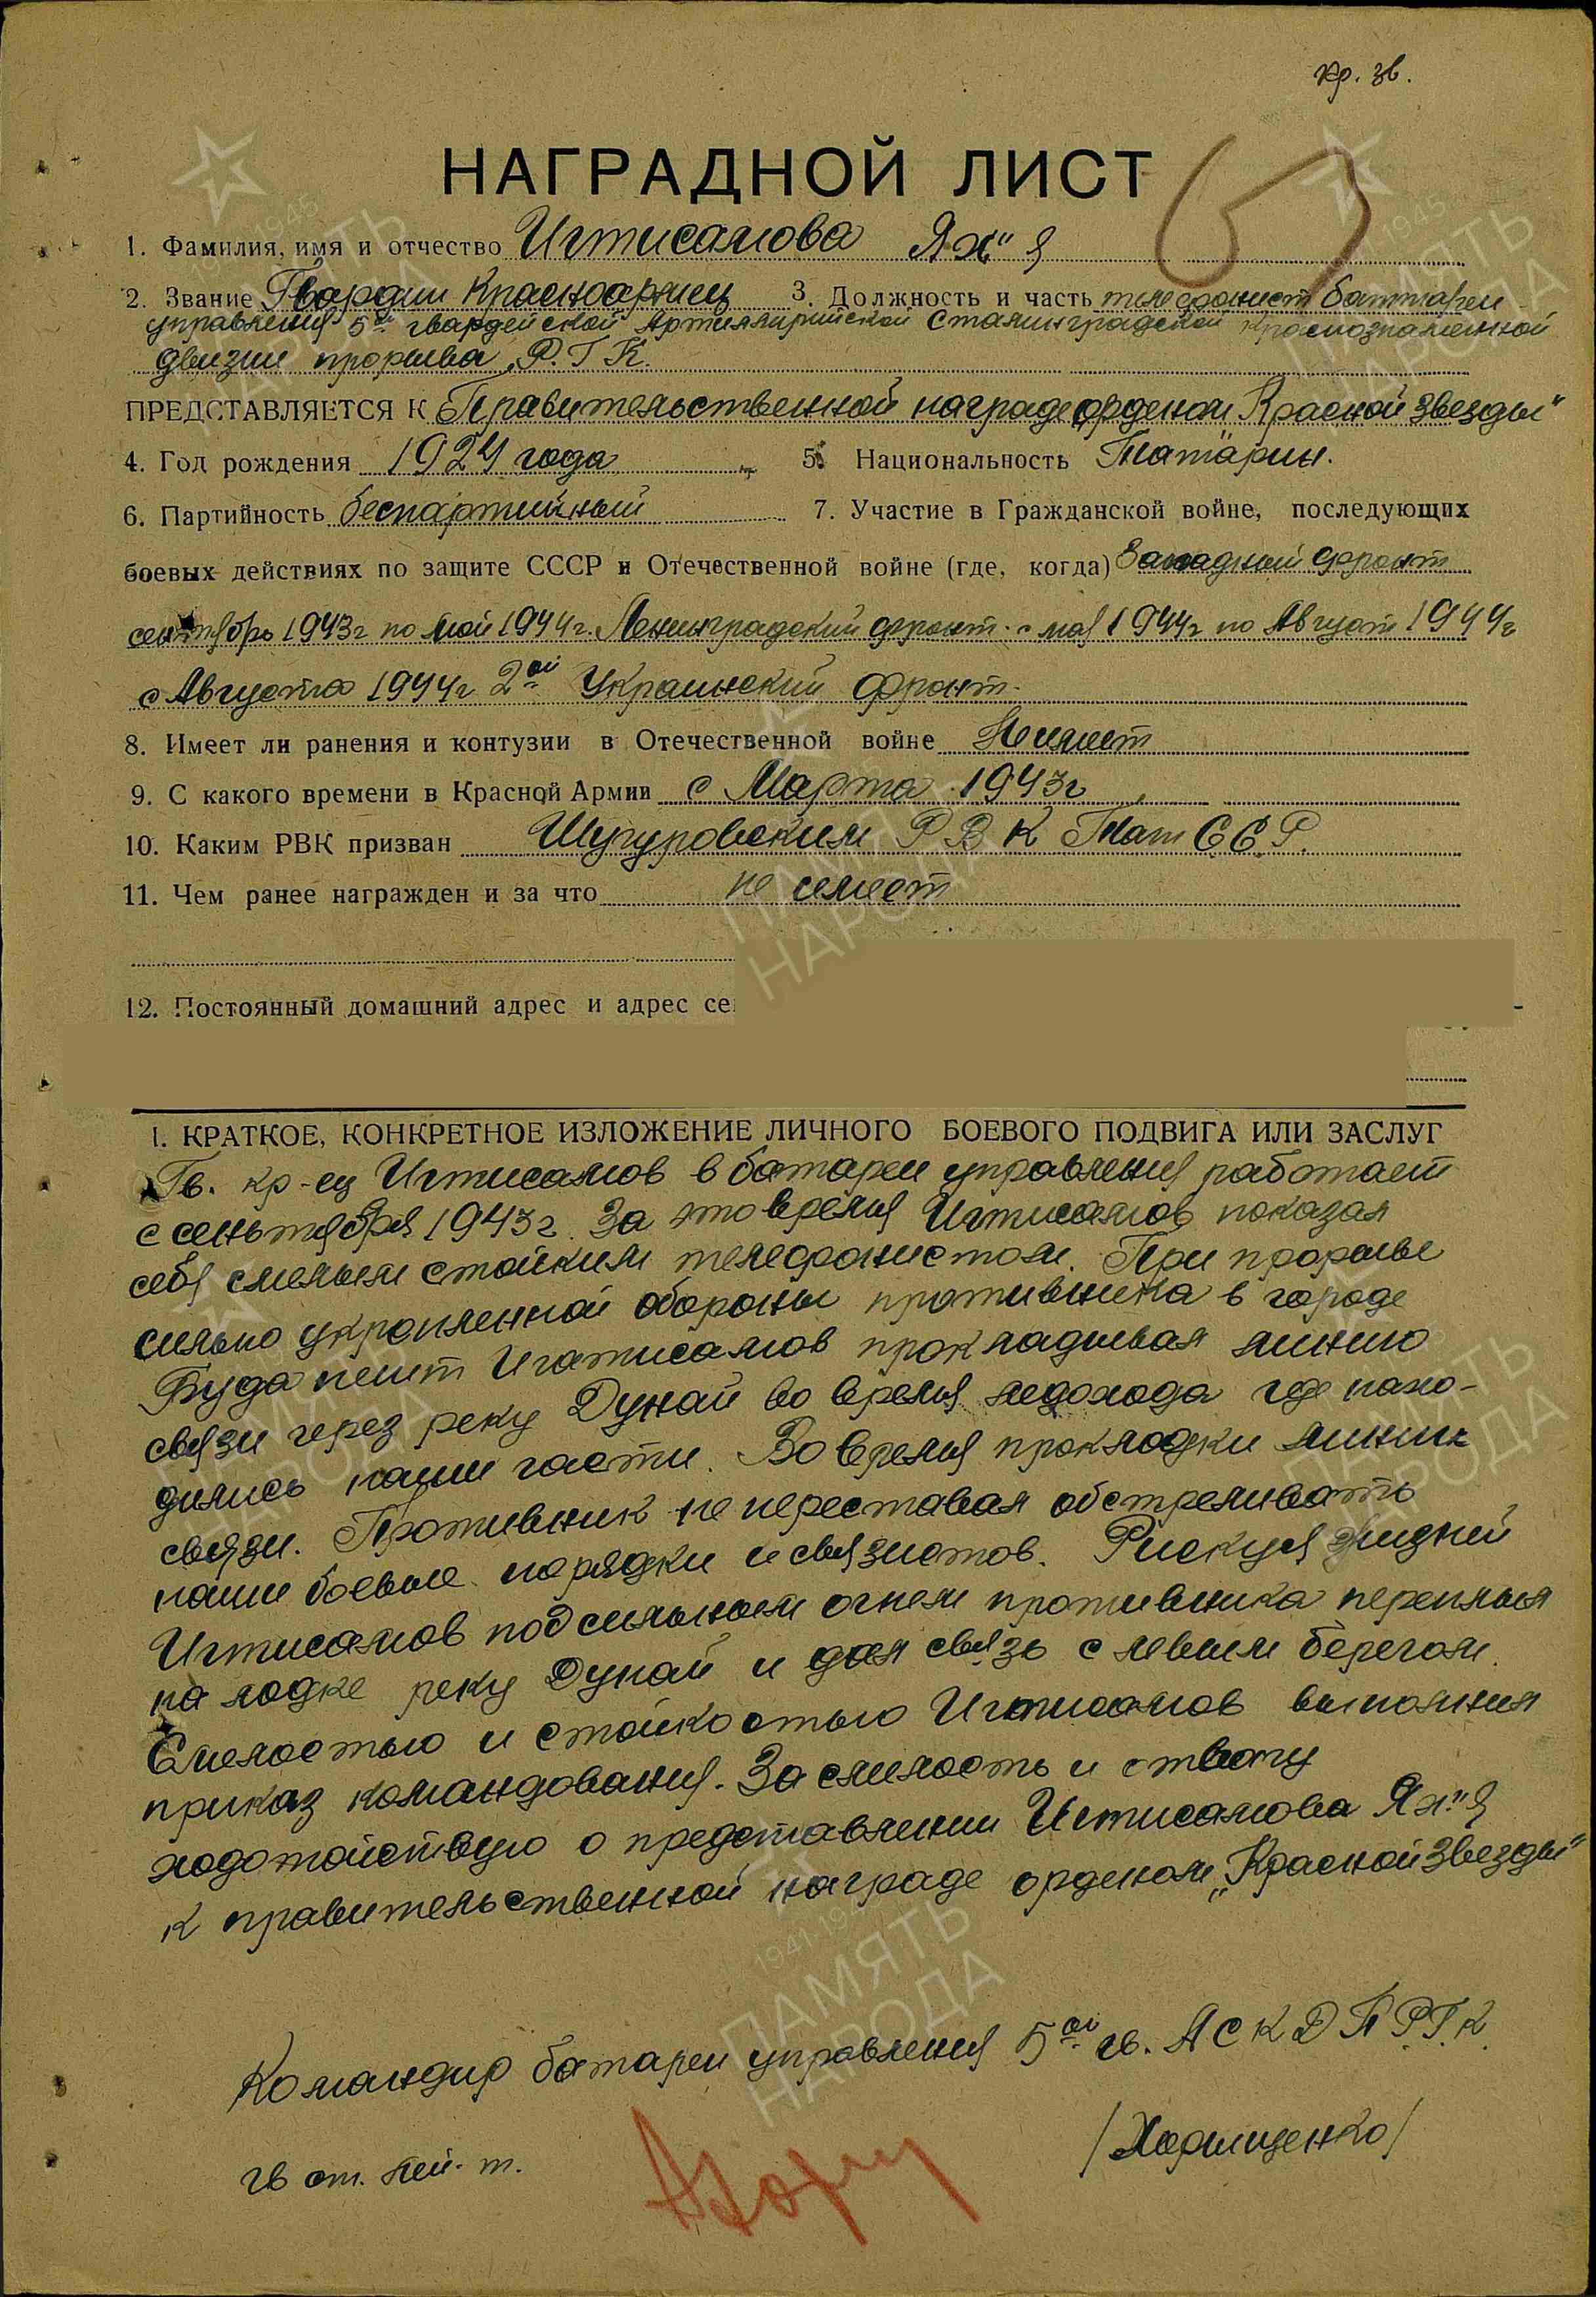 Кр. зв.
НАГРАДНОЙ ЛИСТ
1. Фамилия, имя и отчество Игтисамова Ях"я
2. Звание Гвардии Красноармеец 3. Должность и часть телефонист баттареи
управления 5ой гвардейской Артиллирийской Сталинградской Краснознаменной
двизии прорыва Р.Г.К.
ПРЕДСТАВЛЯЕТСЯ К Правительственной награде орденом „Красной Звезды"
4. Год рождения 1924 года 5. Национальность Татарин.
6. Партийность беспартийный 7. Участие в Гражданской войне, последующих
боевых действиях по защите СССР и Отечественной войне (где, когда) Западный фронт
сентябрь 1943г по май 1944г. Ленинградский фронт. с мая 1944г по Август 1944г
с Августа 1944г 2ой Украинский фронт.
8. Имеет ли ранения и контузии в Отечественной войне Не имеет
9. С какого времени в Красной Армии с Марта 1943г
10. Каким РВК призван Шугуровским Р В К Тат С.С.Р.
11. Чем ранее награжден и за что не имеет
12. Постоянный домашний адрес и адрес се
I. КРАТКОЕ, КОНКРЕТНОЕ ИЗЛОЖЕНИЕ ЛИЧНОГО БОЕВОГО ПОДВИГА ИЛИ ЗАСЛУГ
Гв. кр-ец Игтисамов в батареи управления работает
с сеньтября 1943г. За это время Игтисамов показал
себя смелым стойким телефонистом. При прорыве
сильно укропленной обороны противника в городе
Будапешт Игатисамов прокладывал линию
связи через реку Дунай во время ледохода где нахо-
дились наши части. Во время прокладки линии
связи. Противник не переставал обстреливать
наши боевые порядки и связистов. Рискуя жидней
Игтисамов под сильным огнем противника переплыл
на лодке реку Дунай и дал связь с левым берегом.
Смелостью и стойкостью Игтисамов выполнил
приказ командования. За смелость и отвагу
ходотойствую о представлении Игтисамова Ях"я
к правительственной награде орденом „Красной Звезды"
Командир батареи управления 5ой гв. А С К Д П Р.Г.К.
гв ст. лей-т. /Харищенко/
ПАМЯТЬ
НАРОДА
1941-1945